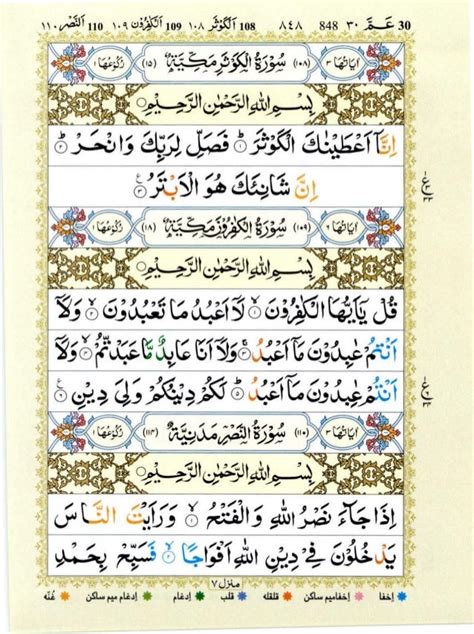 30 عَمَّ ٣٠ 848 ٨٤٨ 108 اَلْكَوْثَر ١٠٨ 109 اَلْكٰفِرُوْن ١٠٩ 110 اَلنَّصْر ١١٠
اٰيَاتُهَا ٣ (١٠٨) سُوْرَةُ الْكَوْثَرِ مَكِّيَّةٌ (١٥) رُكُوْعُهَا ١
بِسْمِ اللهِ الرَّحْمٰنِ الرَّحِيْمِ
اِنَّاۤ اَعْطَيْنٰكَ الْكَوْثَرَ ۝١ فَصَلِّ لِرَبِّكَ وَانْحَرْ ۝٢
اِنَّ شَانِئَكَ هُوَ الْاَبْتَرُ ۝٣
اٰيَاتُهَا ٦ (١٠٩) سُوْرَةُ الْكٰفِرُوْنَ مَكِّيَّةٌ (١٨) رُكُوْعُهَا ١
بِسْمِ اللهِ الرَّحْمٰنِ الرَّحِيْمِ
قُلْ يٰۤاَيُّهَا الْكٰفِرُوْنَ ۝١ لَاۤ اَعْبُدُ مَا تَعْبُدُوْنَ ۝٢ وَلَاۤ
اَنْتُمْ عٰبِدُوْنَ مَاۤ اَعْبُدُ ۝٣ وَلَاۤ اَنَا عَابِدٌ مَّا عَبَدْتُّمْ ۝٤ وَلَاۤ
اَنْتُمْ عٰبِدُوْنَ مَاۤ اَعْبُدُ ۝٥ لَكُمْ دِيْنُكُمْ وَلِيَ دِيْنِ ۝٦
اٰيَاتُهَا ٣ (١١٠) سُوْرَةُ النَّصْرِ مَدَنِيَّةٌ (١١٤) رُكُوْعُهَا ١
بِسْمِ اللهِ الرَّحْمٰنِ الرَّحِيْمِ
اِذَا جَآءَ نَصْرُ اللهِ وَالْفَتْحُ ۝١ وَرَاَيْتَ النَّاسَ
يَدْخُلُوْنَ فِيْ دِيْنِ اللهِ اَفْوَاجًا ۝٢ فَسَبِّحْ بِحَمْدِ
منزل ٧
اخفا اخفامیم ساکن قلقله قلب ادغام ادغام میم ساکن غُنّه